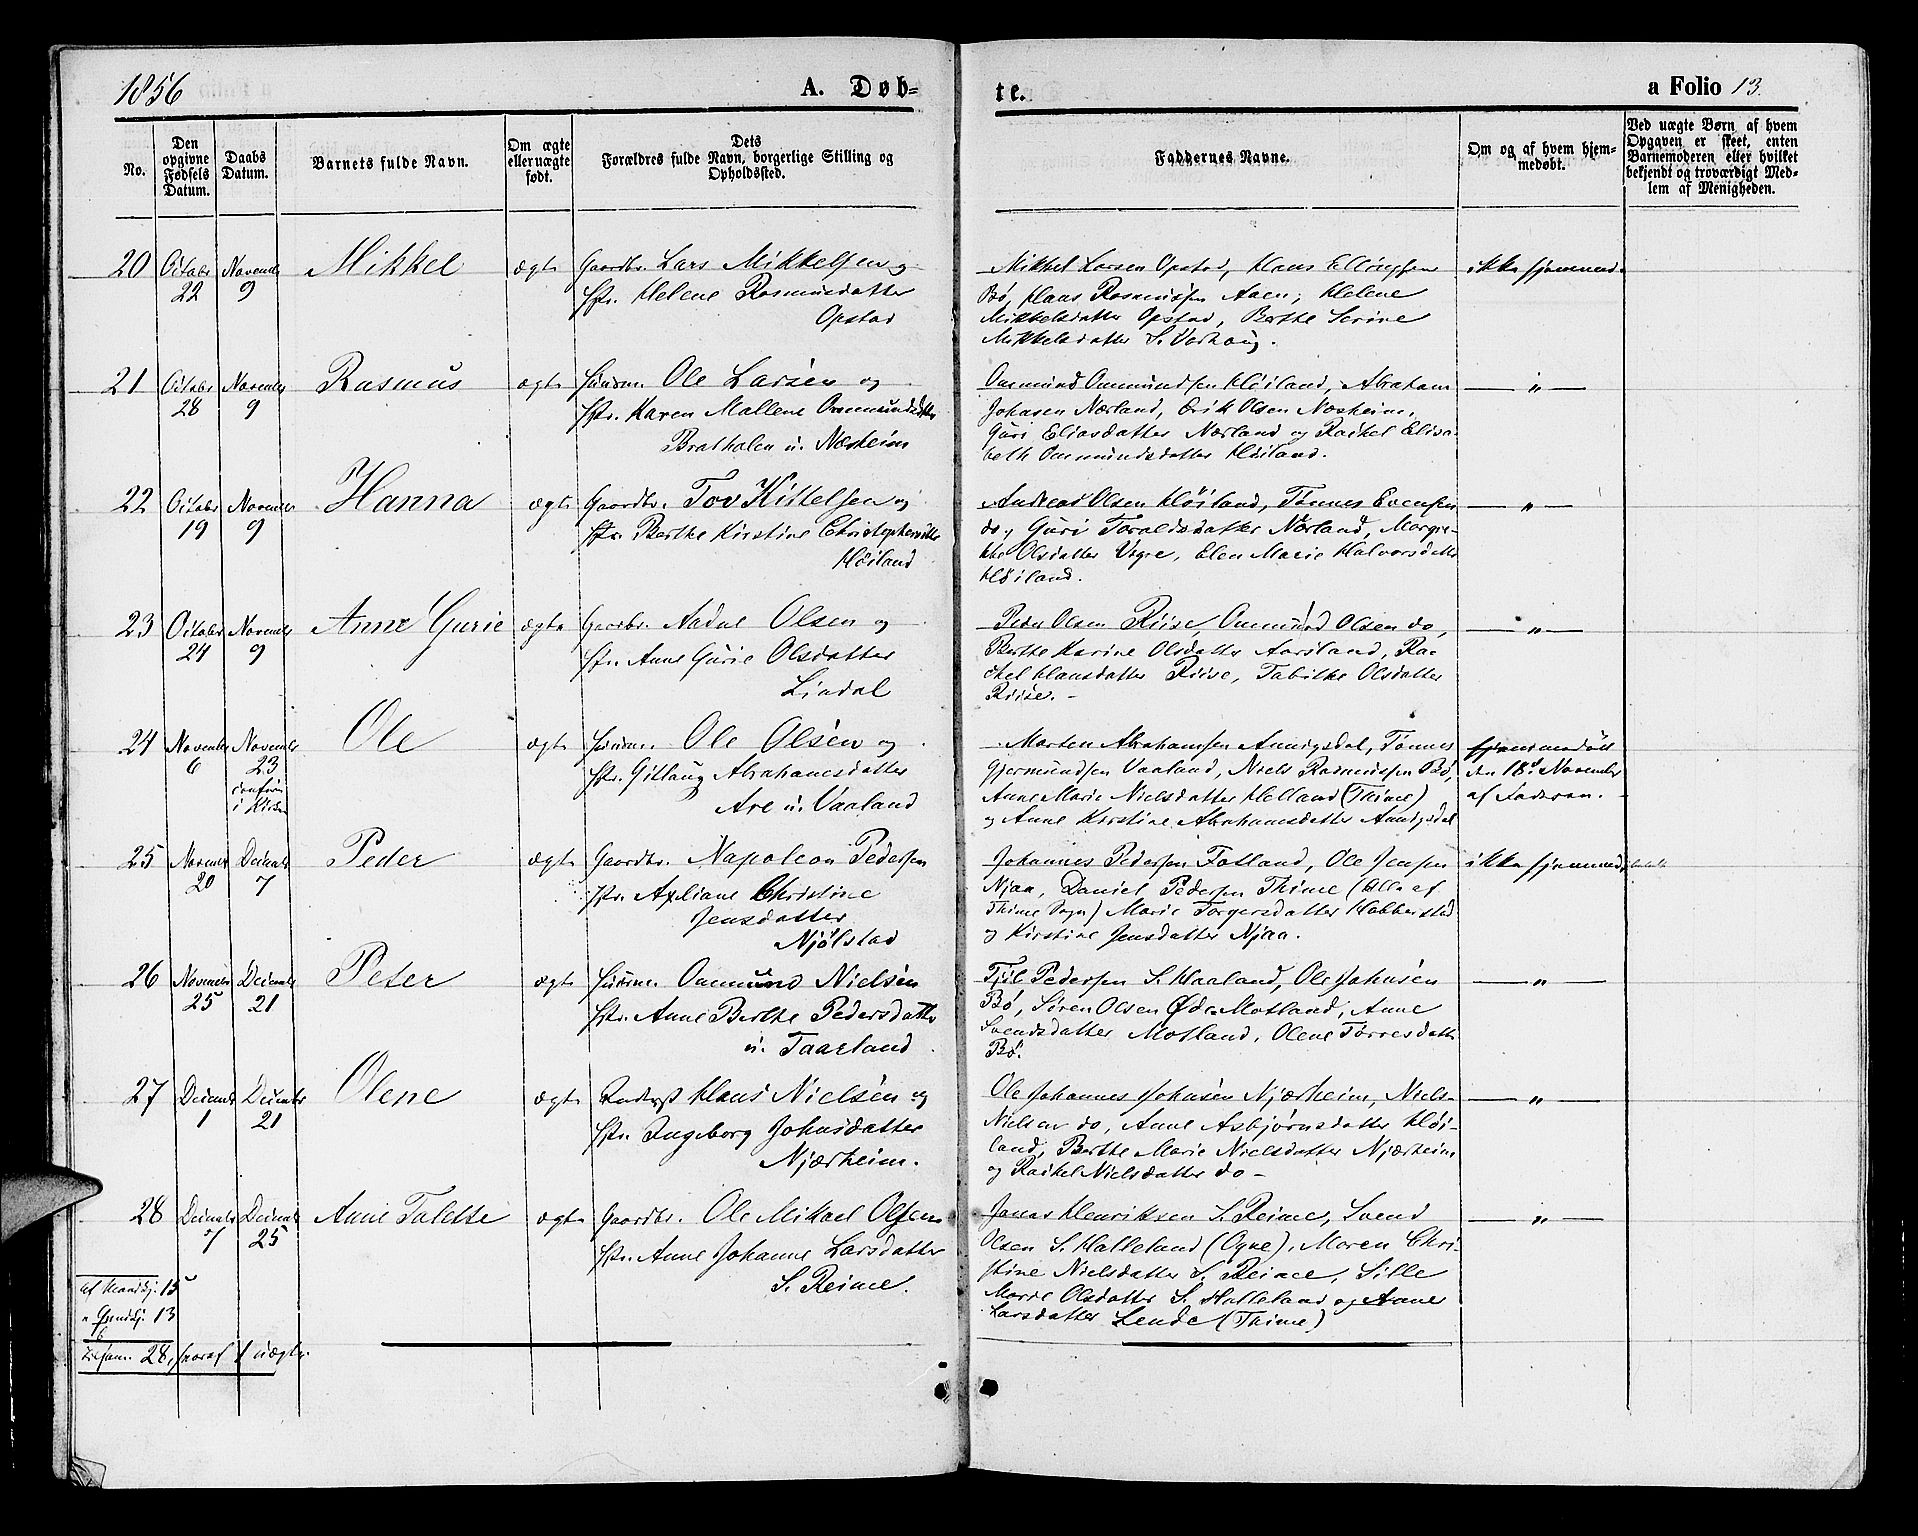 1856
A. Døb-
te.
a Folio 13.
No.
Den opgivne Fødsels Datum.
Daabs Datum.
Barnets fulde Navn.
Om ægte eller uægte født.
Dets Forældres fulde Navn, borgerlige Stilling og Opholdssted.
Faddernes Navne.
Om og af hvem hjem-
medøbt.
Ved uægte Børn af hvem
Opgaven er skeet, enten
Barnemoderen eller hvilket
bekjendt og troværdigt Med-
lem af Menigheden.
20 Octobr 22 Novembr 9 Mikkel ægte
Gaardbr. Lars Mikkelsen og
Hstr. Helene Rasmusdatter
Opstad
Mikkel Larsen Opstad, Hans Ellingsen
Bø, Hans Rasmussen Aaen, Helene
Mikkelsdatter Opstad, Berthe Serine
Mikkelsdatter S. Varhoug.
ikke hjemmed.
21 Octobr 28 Novembr 9 Rasmus ægte
Huusm. Ole Larsen og
Hstr. Karen Mallene Ommundsdtter
Bratholen u. Næsheim
Ommund Ommundsen Høiland, Abraham
Johasen Nærland, Erik Olsen Næsheim,
Guri Eliasdatter Nærland og Rakel Elisa-
beth Ommundsdatter Høiland.
— " —
22 Octobr 19 Novembr 9 Hanna ægte
Gaardbr. Tov Kittelsen og
Hstr. Berthe Kirstine Christophersdtter
Høiland
Andreas Olsen Høiland, Tønnes Evensen
do, Guri Toraldsdatter Nærland, Margre-
the Olsdatter Vigre, Elen Marie Halvorsdatter
Høiland.
— " —
23 Octobr 24 Novembr 9 Anne Gurie ægte
Gaardbr. Aadne Olsen og
Hstr. Anne Gurie Olsdatter
Lindal
Peder Olsen Riise, Ommund Olsen do,
Berthe Karine Olsdatter Aarsland, Ra-
chel Hansdatter Riise, Tabithe Olsdatter
Riise. —
— " —
24 Novembr 6 Novembr 23 confir i Kirken Ole ægte
Huusm. Ole Olsen og
Hstr. Gitlaug Abrahamsdatter
Are u. Vaaland
Morten Abrahamsen Aunigsdal, Tønnes
Gjermundsen Vaaland, Niels Rasmussen Bø,
Anne Marie Nielsdatter Helland (Thime)
og Anne Kirstine Abrahamsdatter Aunigsdal
hjemmedøbt
den 18d November
af Faderen.
25 Novembr 20 Decembr 7 Peder ægte
Gaardbr. Napoleon Pedersen
Hstr. Axeliane Christine
Jensdatter
Njølstad
Johannes Pedersen Fotland, Ole Jensen
Njaa, Daniel Pedersen Thime (Alle af
Thime Sogn) Marie Torgersdatter Hobberstad
og Kirstine Jensdatter Njaa.
ikke hjemmed.
26 Novembr 25 Decembr 21 Peter ægte
Huusm. Ommund Nielsen
Hstr. Anne Berthe Pedersdattr
u. Taarland
Tjøl Pedersen S. Haaland, Ole Johnsen
Bø, Søren Olsen Øde Motland, Anne
Svendsdatter Motland, Olene Tørresdattr
Bø.
— " —
27 Decembr 1 Decembr 21 Olene ægte
Hans Nielsen og
Hstr. Ingeborg Johnsdatter
Njærheim.
Ole Johannes Johnsen Njærheim, Niels
Nielsen do, Anne Asbjørnsdatter Høi-
land, Berthe Marie Nielsdatter Njærheim
og Rakel Nielsdatter do —
— " —
28 Decembr 7 Decembr 25 Anne Talette ægte
Gaardbr. Ole Mikael Olsen
Hstr. Anne Johanne Larsdatter
S. Reime.
Jonas Henriksen S. Reime, Svend
Olsen S. Halleland (Ogne), Maren Chri-
stine Nielsdatter S. Reime, Sille
Marie Olsdatter S. Halleland og Anne
Larsdatter Lende (Thime)
— " —
af Mandkj. 15
" Qvindkj. 13
Tilsam. 28, hvoraf 1 uægte.